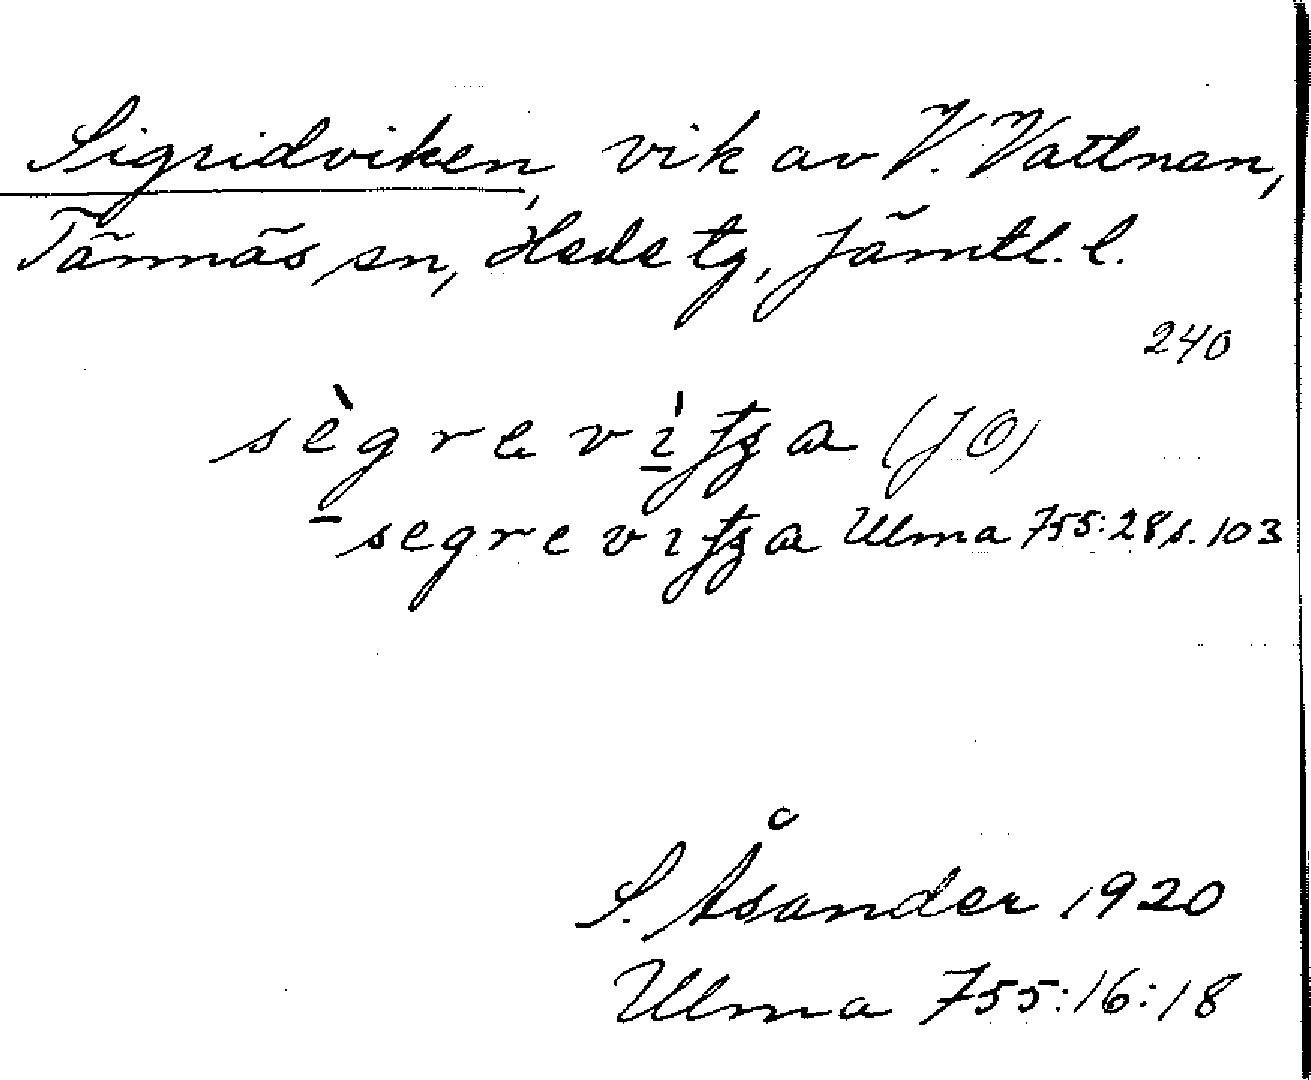 Sigridviken, vik av V. Vattnan,
Tännäs sn, Hede tg, Jämtl. l.
240
sègre (JO)
segre Ulma 755:28 s. 103
S. Åsander 1920
Ulma 755:16:18